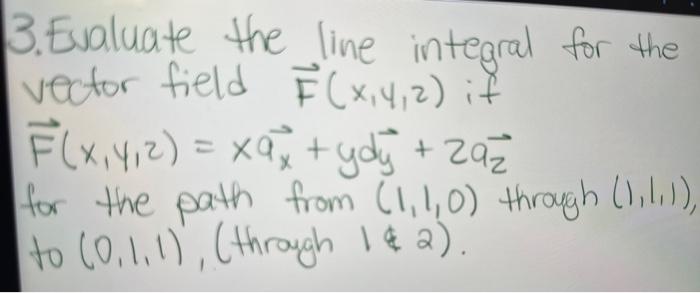 3. Evaluate the line integral for the
vector field F⃗(x,y,z) if
F⃗(x,y,z) = xa⃗ₓ + ydy⃗ + za⃗z
for the path from (1,1,0) through (1,1,1),
to (0,1,1), (through 1 & 2).